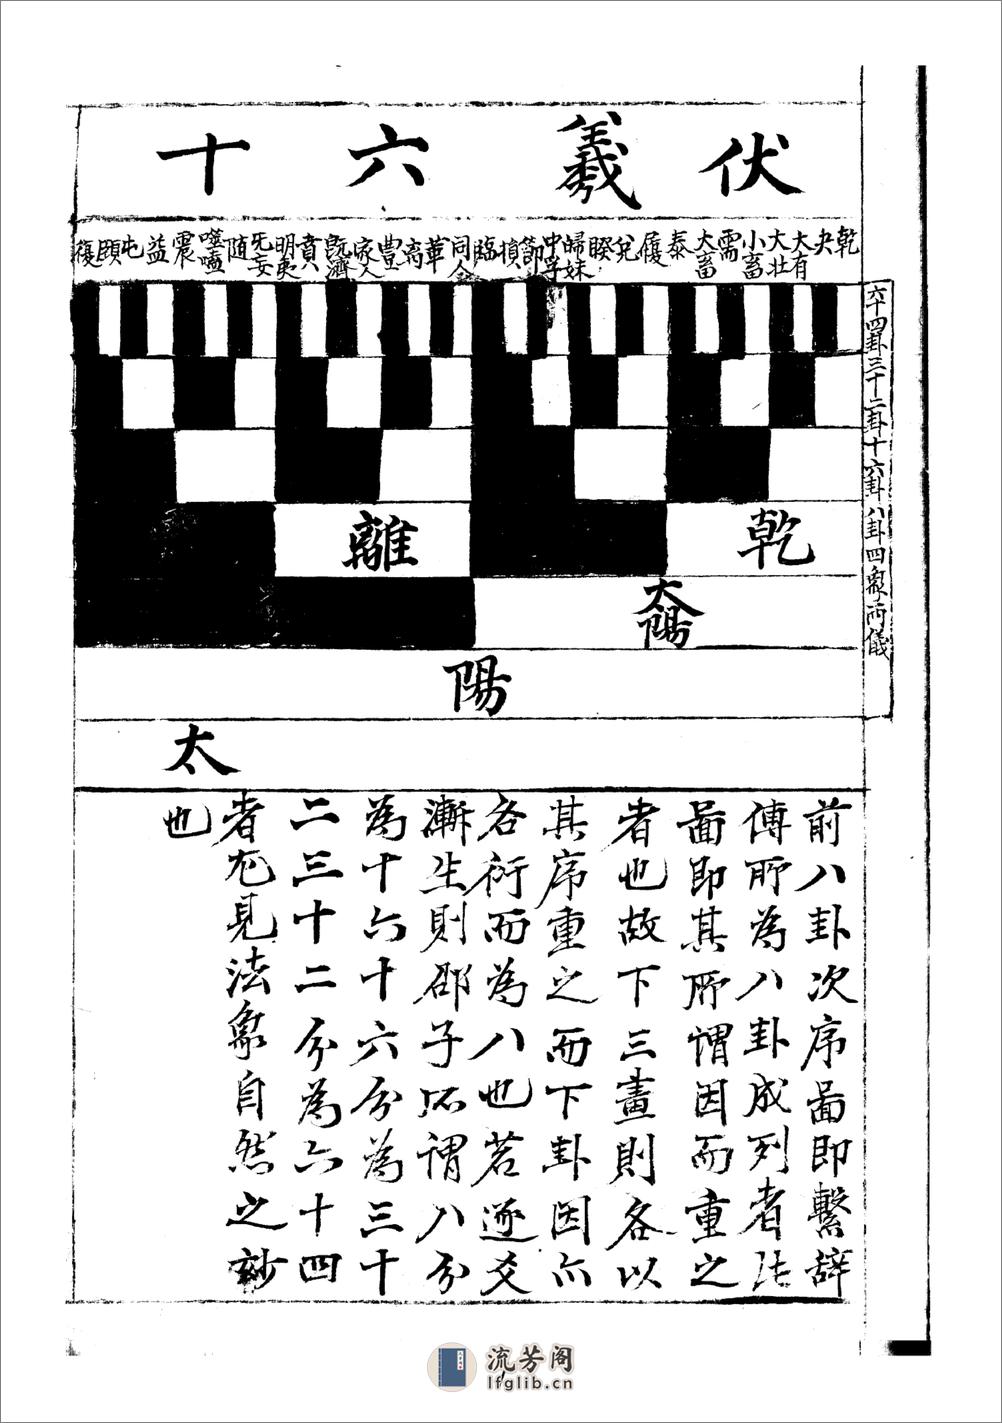 伏羲六十
乾
夬
大有
大壯
小畜
需
大畜
泰
履
兌
睽
歸妹
中孚
節
損
臨
同人
革
离
豊
家人
既濟
賁
明夷
无妄
随
噬嗑
震
益
屯
頤
復
六十四卦三十二卦十六卦八卦四象兩儀
乾
離
太陽
陽
太
前八卦次序啚即繫辞
傳所為八卦成列者法
啚即其所謂因而重之
者也故下三畫則各以
其序重之而下卦因亦
各衍而為八也若逐爻
漸生則邵子所謂八分
為十六十六分為三十
二三十二分為六十四
者尤見法象自然之妙
也
流芳阁
lfglib.cn